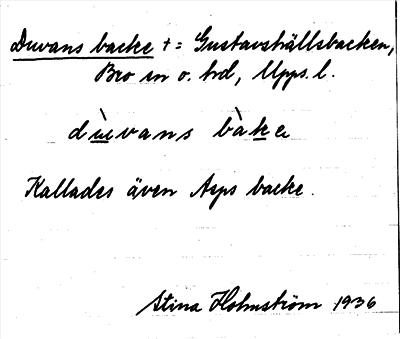 Duvans backe + = Gustavshällsbacken,
Bro sn o. hd, Upps. l.
dùvans bàka
Kallades även Asps backe.
Stina Holmström 1936